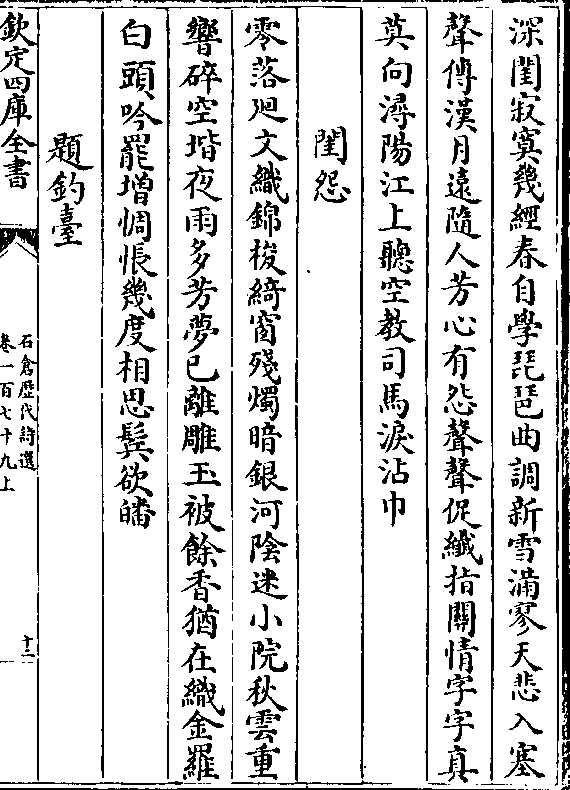 深閨寂寞幾經春自學琵琶曲調新雪滿寥天悲入塞
聲傳漢月遠隨人芳心有怨聲聲促纖指關情字字真
莫向潯陽江上聽空教司馬淚沾巾
閨怨
零落廻文織錦梭綺窗殘燭暗銀河陰迷小院秋雲重
響碎空堦夜雨多芳夢已離雕玉被餘香猶在織金羅
白頭吟罷增惆悵幾度相思鬂欲皤
題釣臺
欽定四庫全書
石倉歷代詩選
卷一百七十九上
十二